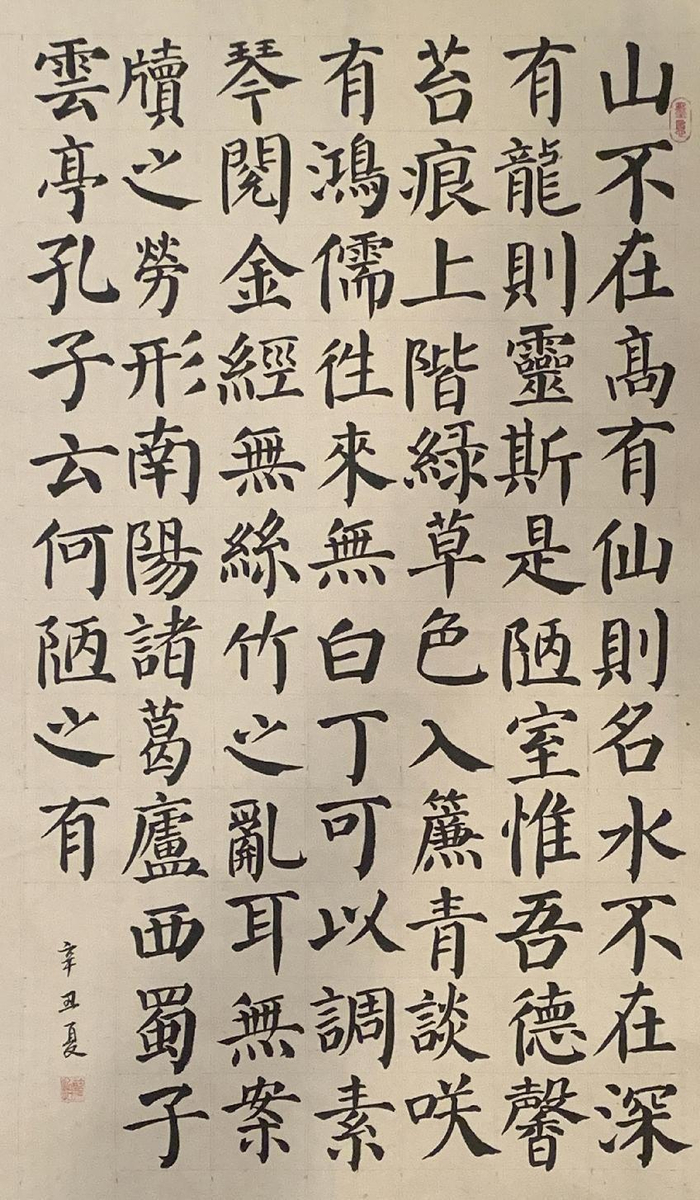 山不在高有仙則名水不在深
有龍則靈斯是陋室惟吾德馨
苔痕上階綠草色入簾青談咲
有鴻儒往來無白丁可以調素
琴閱金經無絲竹之亂耳無案
牘之勞形南陽諸葛廬西蜀子
雲亭孔子云何陋之有
辛丑夏